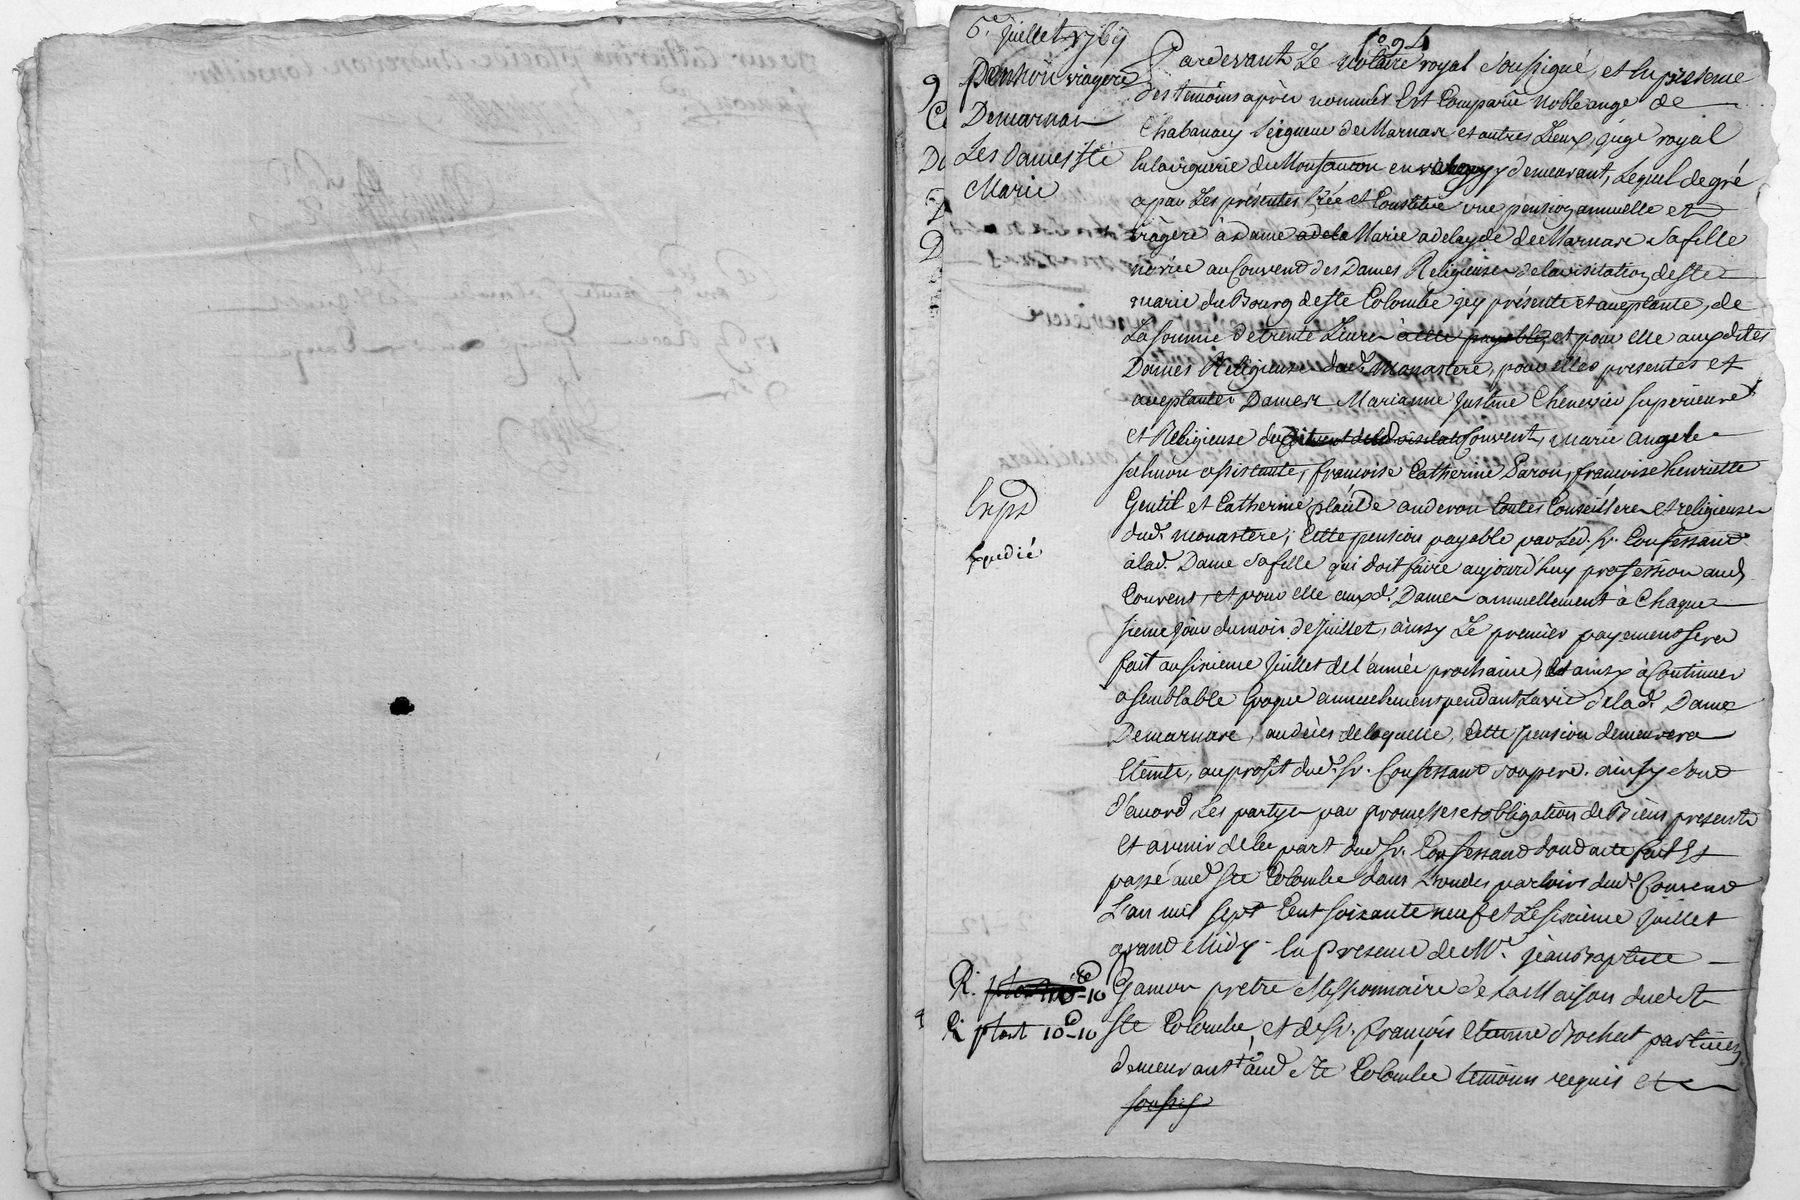 6e. juillet 1769
Pension viagere
Demarnas
Les Dames Ste
Marie
Expd
Expedié
R. 10-10
R. pr lant 10d-10
Pardevant Le Notaire royal soussigné, et en presence
des temoins après nommés Est Comparu Noble ange de
Chabanacy seigneur de Marnas et autres Lieux, juge royal
en la viguerie de Monfaucon en velay y demeurant, Lequel de gré
a par Les présentes Créé et Constitué une pension annuelle et
viagère à Dame adela Marie adelayde de Marnas sa fille
novice au Couvent des Dames Religieuses de la visitation de ste
marie du Bourg de ste Colombe icy présente et aceptante, de
La somme de trente Livres à elle payable, et pour elle aux dites
Dames Religieuses dud. Monastere, pour elles presentes et
aceptantes Dames Marianne Justine Chenevier superieure
et Religieuse du Couvent, Marie angele
salmon assistante, francoise Catherine Baron, francoise henriette
Gentil et Catherine placide anderon toutes Conseilleres et religieuses
dud. monastere; Cette pension payable par Led. sr. Confessant
à lad. Dame sa fille qui doit faire aujourd'huy profession aud.
Couvent, et pour elle auxd. Dames annuellement à Chaque
sixieme jour du mois de Juillet, ainsy Le premier payement sera
fait au sixieme Juillet de l'année prochaine, et ainsy à Continuer
a semblable Epoque annuelement pendant La vie de lad. Dame
Demarnas, au décès de laquelle, Cette pension demeurera
Eteinte, au profit dud. sr. Confessant son pere. ainsy sont
d'acord Les partyes par promesses et obligation de Biens presents
Et avenir de la part dud. sr. Confessant dont acte fait et
passé aud. ste Colombe dans L'un des parloirs dud. Couvent
L'an mil sept Cent soixante neuf et Le sixieme Juillet
avant Midy en presence de Mre. Jean Baptiste
Gamon pretre Missionnaire de la Maison dudit
Ste Colombe, et de sr. François Etienne Brochet
demeurants aud. Ste Colombe temoins requis et
soussig